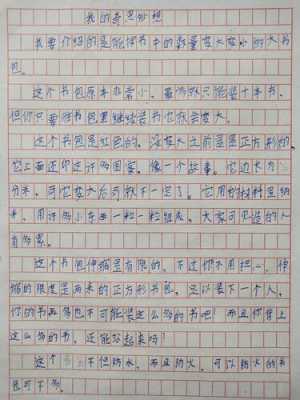 我的奇思妙想
我要介绍的是能随书本的数量变大变小的大书
包。
这个书包原本非常小，最多只能装十本书。
但你只要往书包里继续装书它就会变大。
这个书包是红色的。没变大之前是正方形的。
它上面还印这许多图案。像一个故事。它边长为
分米。可它变大后可就不一定了。它用的材料是纳
米。用许多小车一粒一粒组成。大家可见造的人
有多累。
这个书包伸缩是有限的。不过你不用担心，伸
缩的限度是两米的正方形书包。足以装下一个人。
你的书再多也不可能装这么多的书吧！而且你背上
这么多的书。还能站起来吗？
这个 不但防水。而且防火。可以防火的书
包可不多。